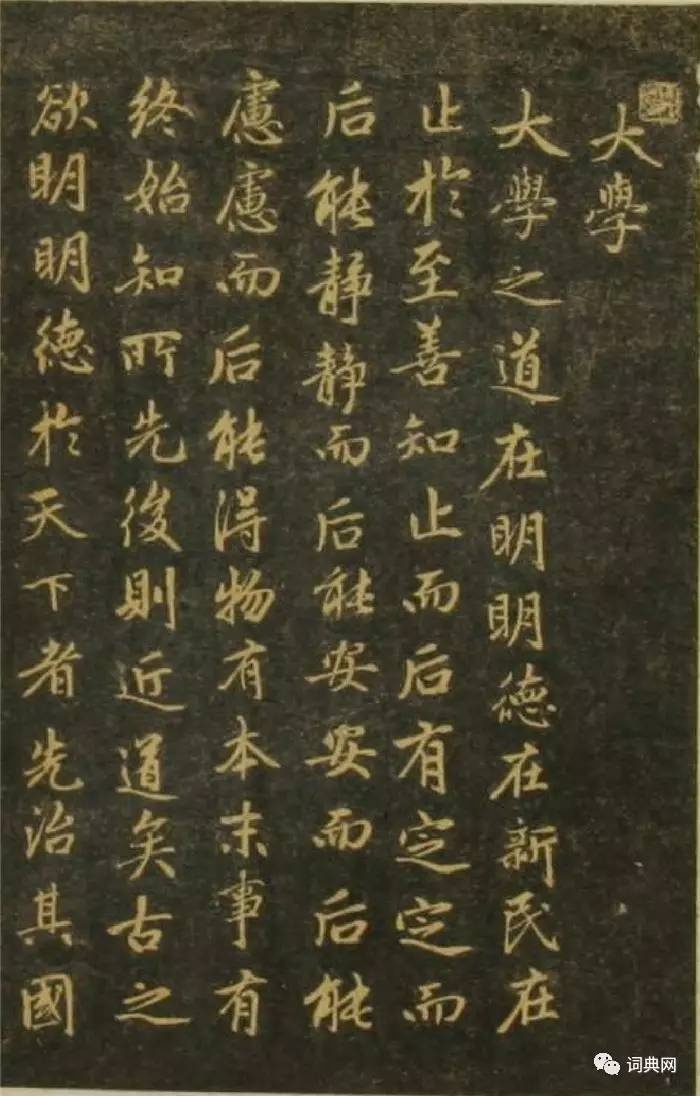 大學
大學之道在明明德在新民在
止於至善知止而后有定定而
后能静静而后能安安而后能
慮慮而后能得物有本末事有
終始知所先後則近道矣古之
欲明明德於天下者先治其國
词典网